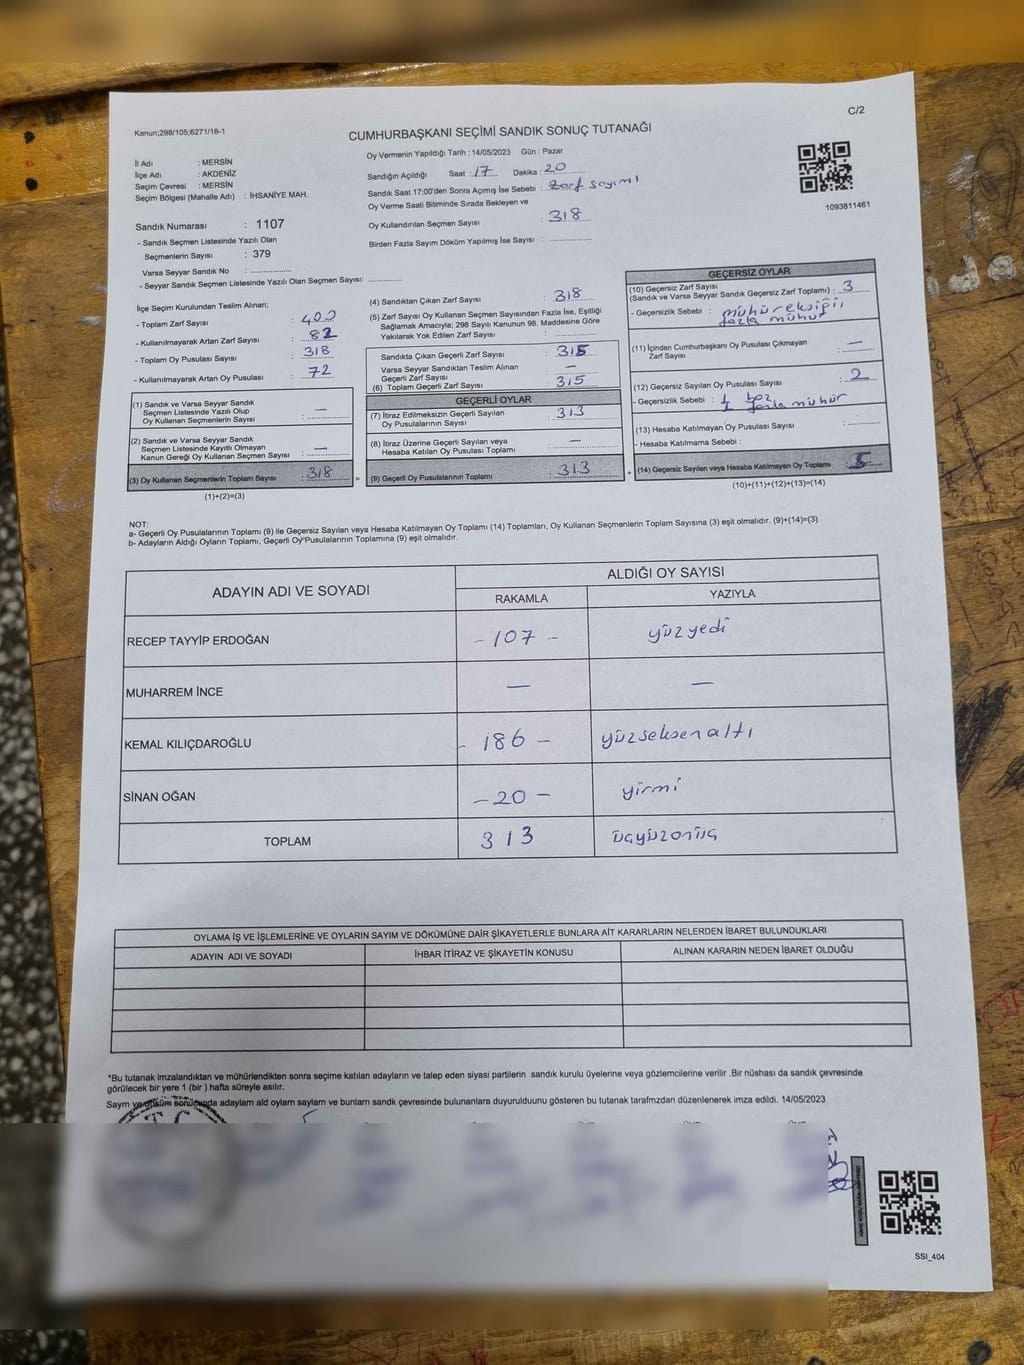 C/2
Kanun;298/105;6271/18-1
CUMHURBAŞKANI SEÇİMİ SANDIK SONUÇ TUTANAĞI
İl Adı : MERSİN
İlçe Adı : AKDENİZ
Seçim Çevresi : MERSİN
Seçim Bölgesi (Mahalle Adı) : İHSANİYE MAH.
Sandık Numarası : 1107
- Sandık Seçmen Listesinde Yazılı Olan
Seçmenlerin Sayısı : 379
Varsa Seyyar Sandık No : ..............
- Seyyar Sandık Seçmen Listesinde Yazılı Olan Seçmen Sayısı: ...........
Oy Vermenin Yapıldığı Tarih : 14/05/2023 Gün : Pazar
Sandığın Açıldığı Saat : 17 Dakika : 20
Sandık Saat 17:00'den Sonra Açımış İse Sebebi : Zarf sayımı
Oy Verme Saati Bitiminde Sırada Bekleyen ve
Oy Kullandırılan Seçmen Sayısı : 318
Birden Fazla Sayım Döküm Yapılmış İse Sayısı : ..............
1093811461
İlçe Seçim Kurulundan Teslim Alınan;
- Toplam Zarf Sayısı : 400
- Kullanılmayarak Artan Zarf Sayısı : 82
- Toplam Oy Pusulası Sayısı : 318
- Kullanılmayarak Artan Oy Pusulası : 72
(1) Sandık ve Varsa Seyyar Sandık
Seçmen Listesinde Yazılı Olup
Oy Kullanan Seçmenlerin Sayısı : —
(2) Sandık ve Varsa Seyyar Sandık
Seçmen Listesinde Kayıtlı Olmayan
Kanun Gereği Oy Kullanan Seçmen Sayısı : —
(3) Oy Kullanan Seçmenlerin Toplam Sayısı : 318
(1)+(2)=(3)
=
(4) Sandıktan Çıkan Zarf Sayısı : 318
(5) Zarf Sayısı Oy Kullanan Seçmen Sayısından Fazla İse, Eşitliği
Sağlamak Amacıyla; 298 Sayılı Kanunun 98. Maddesine Göre
Yakılarak Yok Edilen Zarf Sayısı : ..............
Sandıkta Çıkan Geçerli Zarf Sayısı : 315
Varsa Seyyar Sandıktan Teslim Alınan
Geçerli Zarf Sayısı : —
(6) Toplam Geçerli Zarf Sayısı : 315
GEÇERLİ OYLAR
(7) İtiraz Edilmeksizin Geçerli Sayılan
Oy Pusulalarının Sayısı : 313
(8) İtiraz Üzerine Geçerli Sayılan veya
Hesaba Katılan Oy Pusulası Toplamı : —
(9) Geçerli Oy Pusulalarının Toplamı : 313
+
GEÇERSİZ OYLAR
(10) Geçersiz Zarf Sayısı
(Sandık ve Varsa Seyyar Sandık Geçersiz Zarf Toplamı) : 3
- Geçersizlik Sebebi : mühür eksiği
fazla mühür
(11) İçinden Cumhurbaşkanı Oy Pusulası Çıkmayan
Zarf Sayısı : —
(12) Geçersiz Sayılan Oy Pusulası Sayısı : 2
- Geçersizlik Sebebi : 1 boz
1 fazla mühür
(13) Hesaba Katılmayan Oy Pusulası Sayısı : ..........
- Hesaba Katılmama Sebebi :
(14) Geçersiz Sayılan veya Hesaba Katılmayan Oy Toplamı : 5
(10)+(11)+(12)+(13)=(14)
NOT:
a- Geçerli Oy Pusulalarının Toplamı (9) ile Geçersiz Sayılan veya Hesaba Katılmayan Oy Toplamı (14) Toplamları, Oy Kullanan Seçmenlerin Toplam Sayısına (3) eşit olmalıdır. (9)+(14)=(3)
b- Adayların Aldığı Oyların Toplamı, Geçerli Oy Pusulalarının Toplamına (9) eşit olmalıdır.
ADAYIN ADI VE SOYADI ALDIĞI OY SAYISI
RAKAMLA YAZIYLA
RECEP TAYYİP ERDOĞAN - 107 - yüzyedi
MUHARREM İNCE — —
KEMAL KILIÇDAROĞLU - 186 - yüzseksenaltı
SİNAN OĞAN - 20 - yirmi
TOPLAM 313 üçyüzonüç
OYLAMA İŞ VE İŞLEMLERİNE VE OYLARIN SAYIM VE DÖKÜMÜNE DAİR ŞİKAYETLERLE BUNLARA AİT KARARLARIN NELERDEN İBARET BULUNDUKLARI
ADAYIN ADI VE SOYADI İHBAR İTİRAZ VE ŞİKAYETİN KONUSU ALINAN KARARIN NEDEN İBARET OLDUĞU
*Bu tutanak imzalandıktan ve mühürlendikten sonra seçime katılan adayların ve talep eden siyasi partilerin sandık kurulu üyelerine veya gözlemcilerine verilir .Bir nüshası da sandık çevresinde
görülecek bir yere 1 (bir ) hafta süreyle asılır.
Sayım ve döküm sonucunda adayların ald oyların sayların ve bunların sandk çevresinde bulunanlara duyurulduunu gösteren bu tutanak tarafmzdan düzenlenerek imza edildi. 14/05/2023
SSI_404